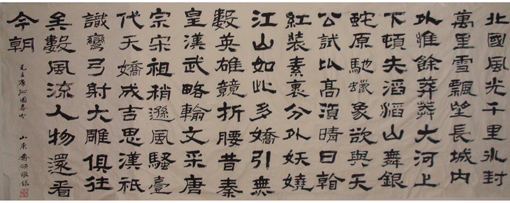 北國風光千里冰封
萬里雪飄望長城内
外惟餘莽莽大河上
下頓失滔滔山舞銀
蛇原馳蠟象欲與天
公試比高須晴日看
紅装素裹分外妖嬈
江山如此多嬌引無
數英雄競折腰昔秦
皇漢武略輸文采唐
宗宋祖稍遜風騷壹
代天嬌成吉思漢祇
識彎弓射大雕俱往
矣數風流人物還看
今朝
毛主席沁園春雪
山東